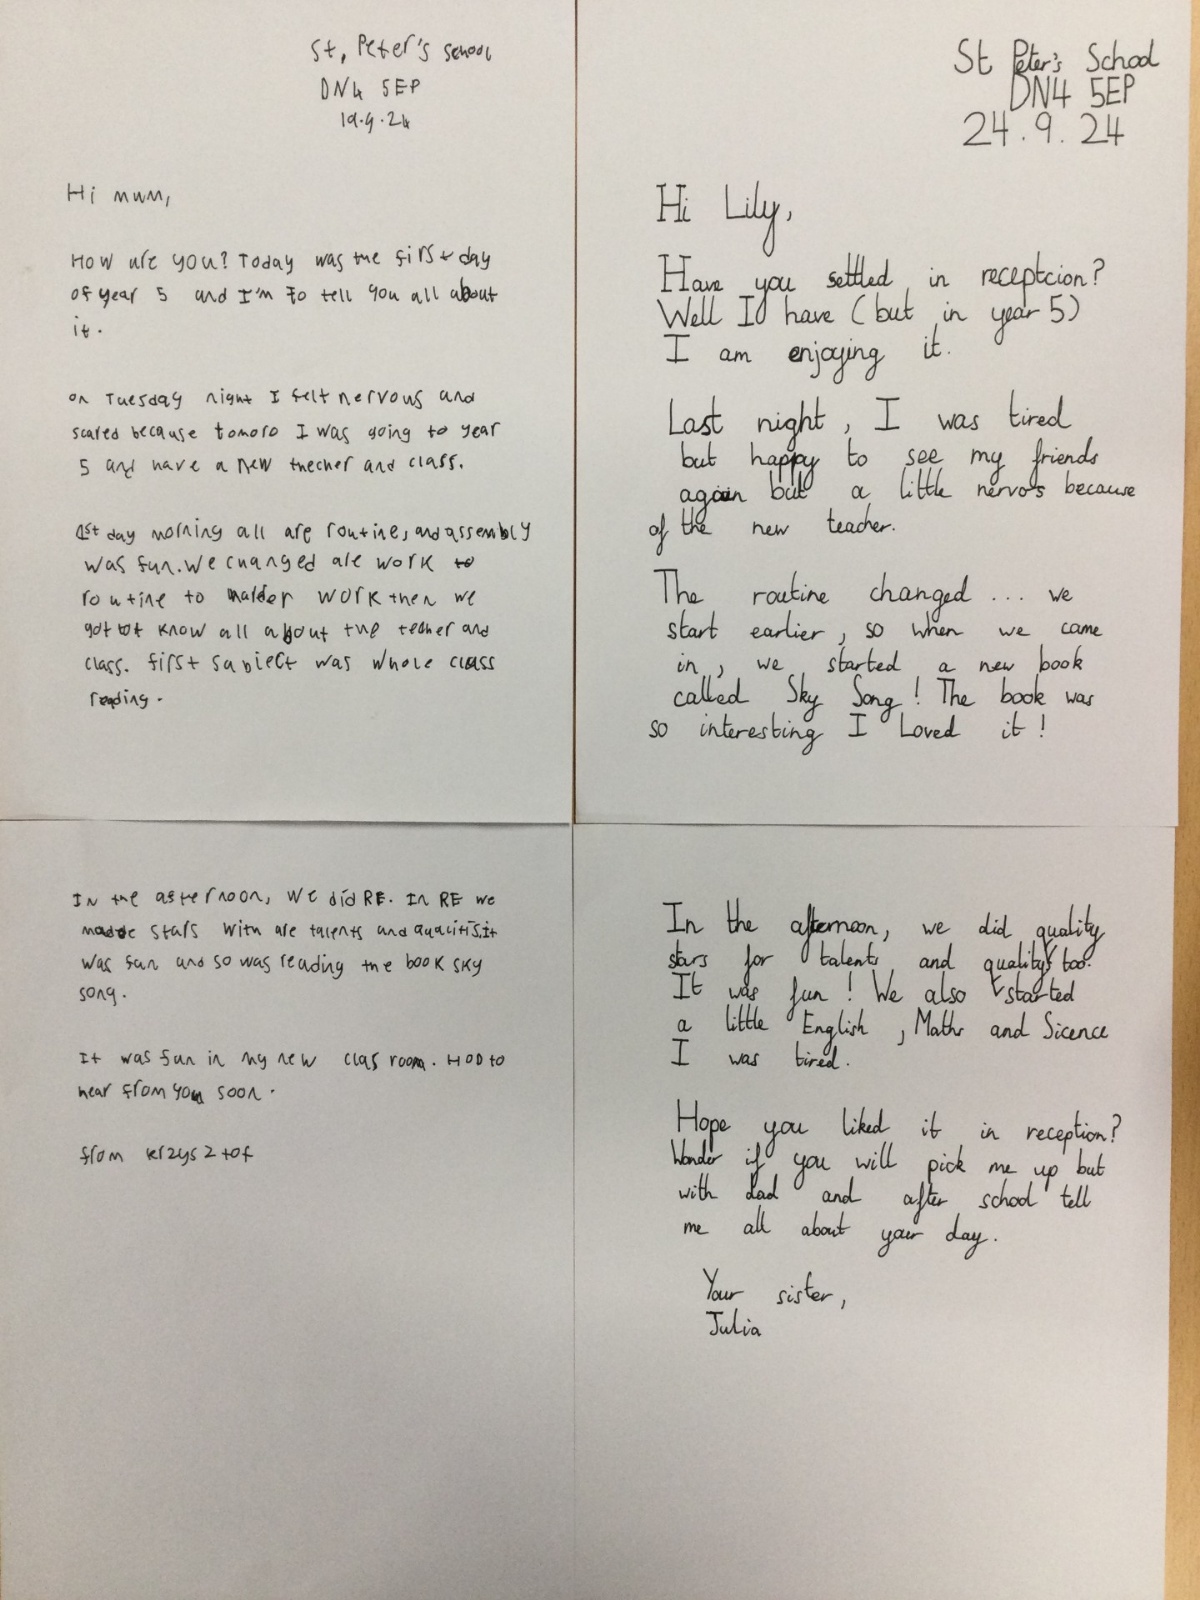 St, Peter's school
DN4 5EP
19.9.24
Hi mum,
How are you? Today was the first day
of year 5 and I'm Fo tell you all about
it.
on Tuesday night I felt nervous and
scared because tomoro I was going to year
5 and have a new thecher and class.
1st day morning all are routine, and assembly
was fun. We changed are work to
routine to harder work then we
got tot know all about the techer and
class. first subject was whole class
reading.
In the afternoon, we did RE. In RE we
made stars with are talents and qualitis.it
was fun and so was reading the book sky
song.
It was fun in my new clas room. HOD to
hear from you soon.
from krzysztof
St Peter's School
DN4 5EP
24.9.24
Hi Lily,
Have you settled in receptcion?
Well I have (but in year 5)
I am enjoying it.
Last night, I was tired
but happy to see my friends
again but a little nervo's because
of the new teacher.
The routine changed ... we
start earlier, so when we came
in, we started a new book
called Sky Song! The book was
so interesting I Loved it!
In the afternoon, we did quality
stars for talents and quality too.
It was fun! We also started
a little English, Maths and Sicence
I was tired.
Hope you liked it in reception?
Wonder if you will pick me up but
with dad and after school tell
me all about your day.
Your sister,
Julia